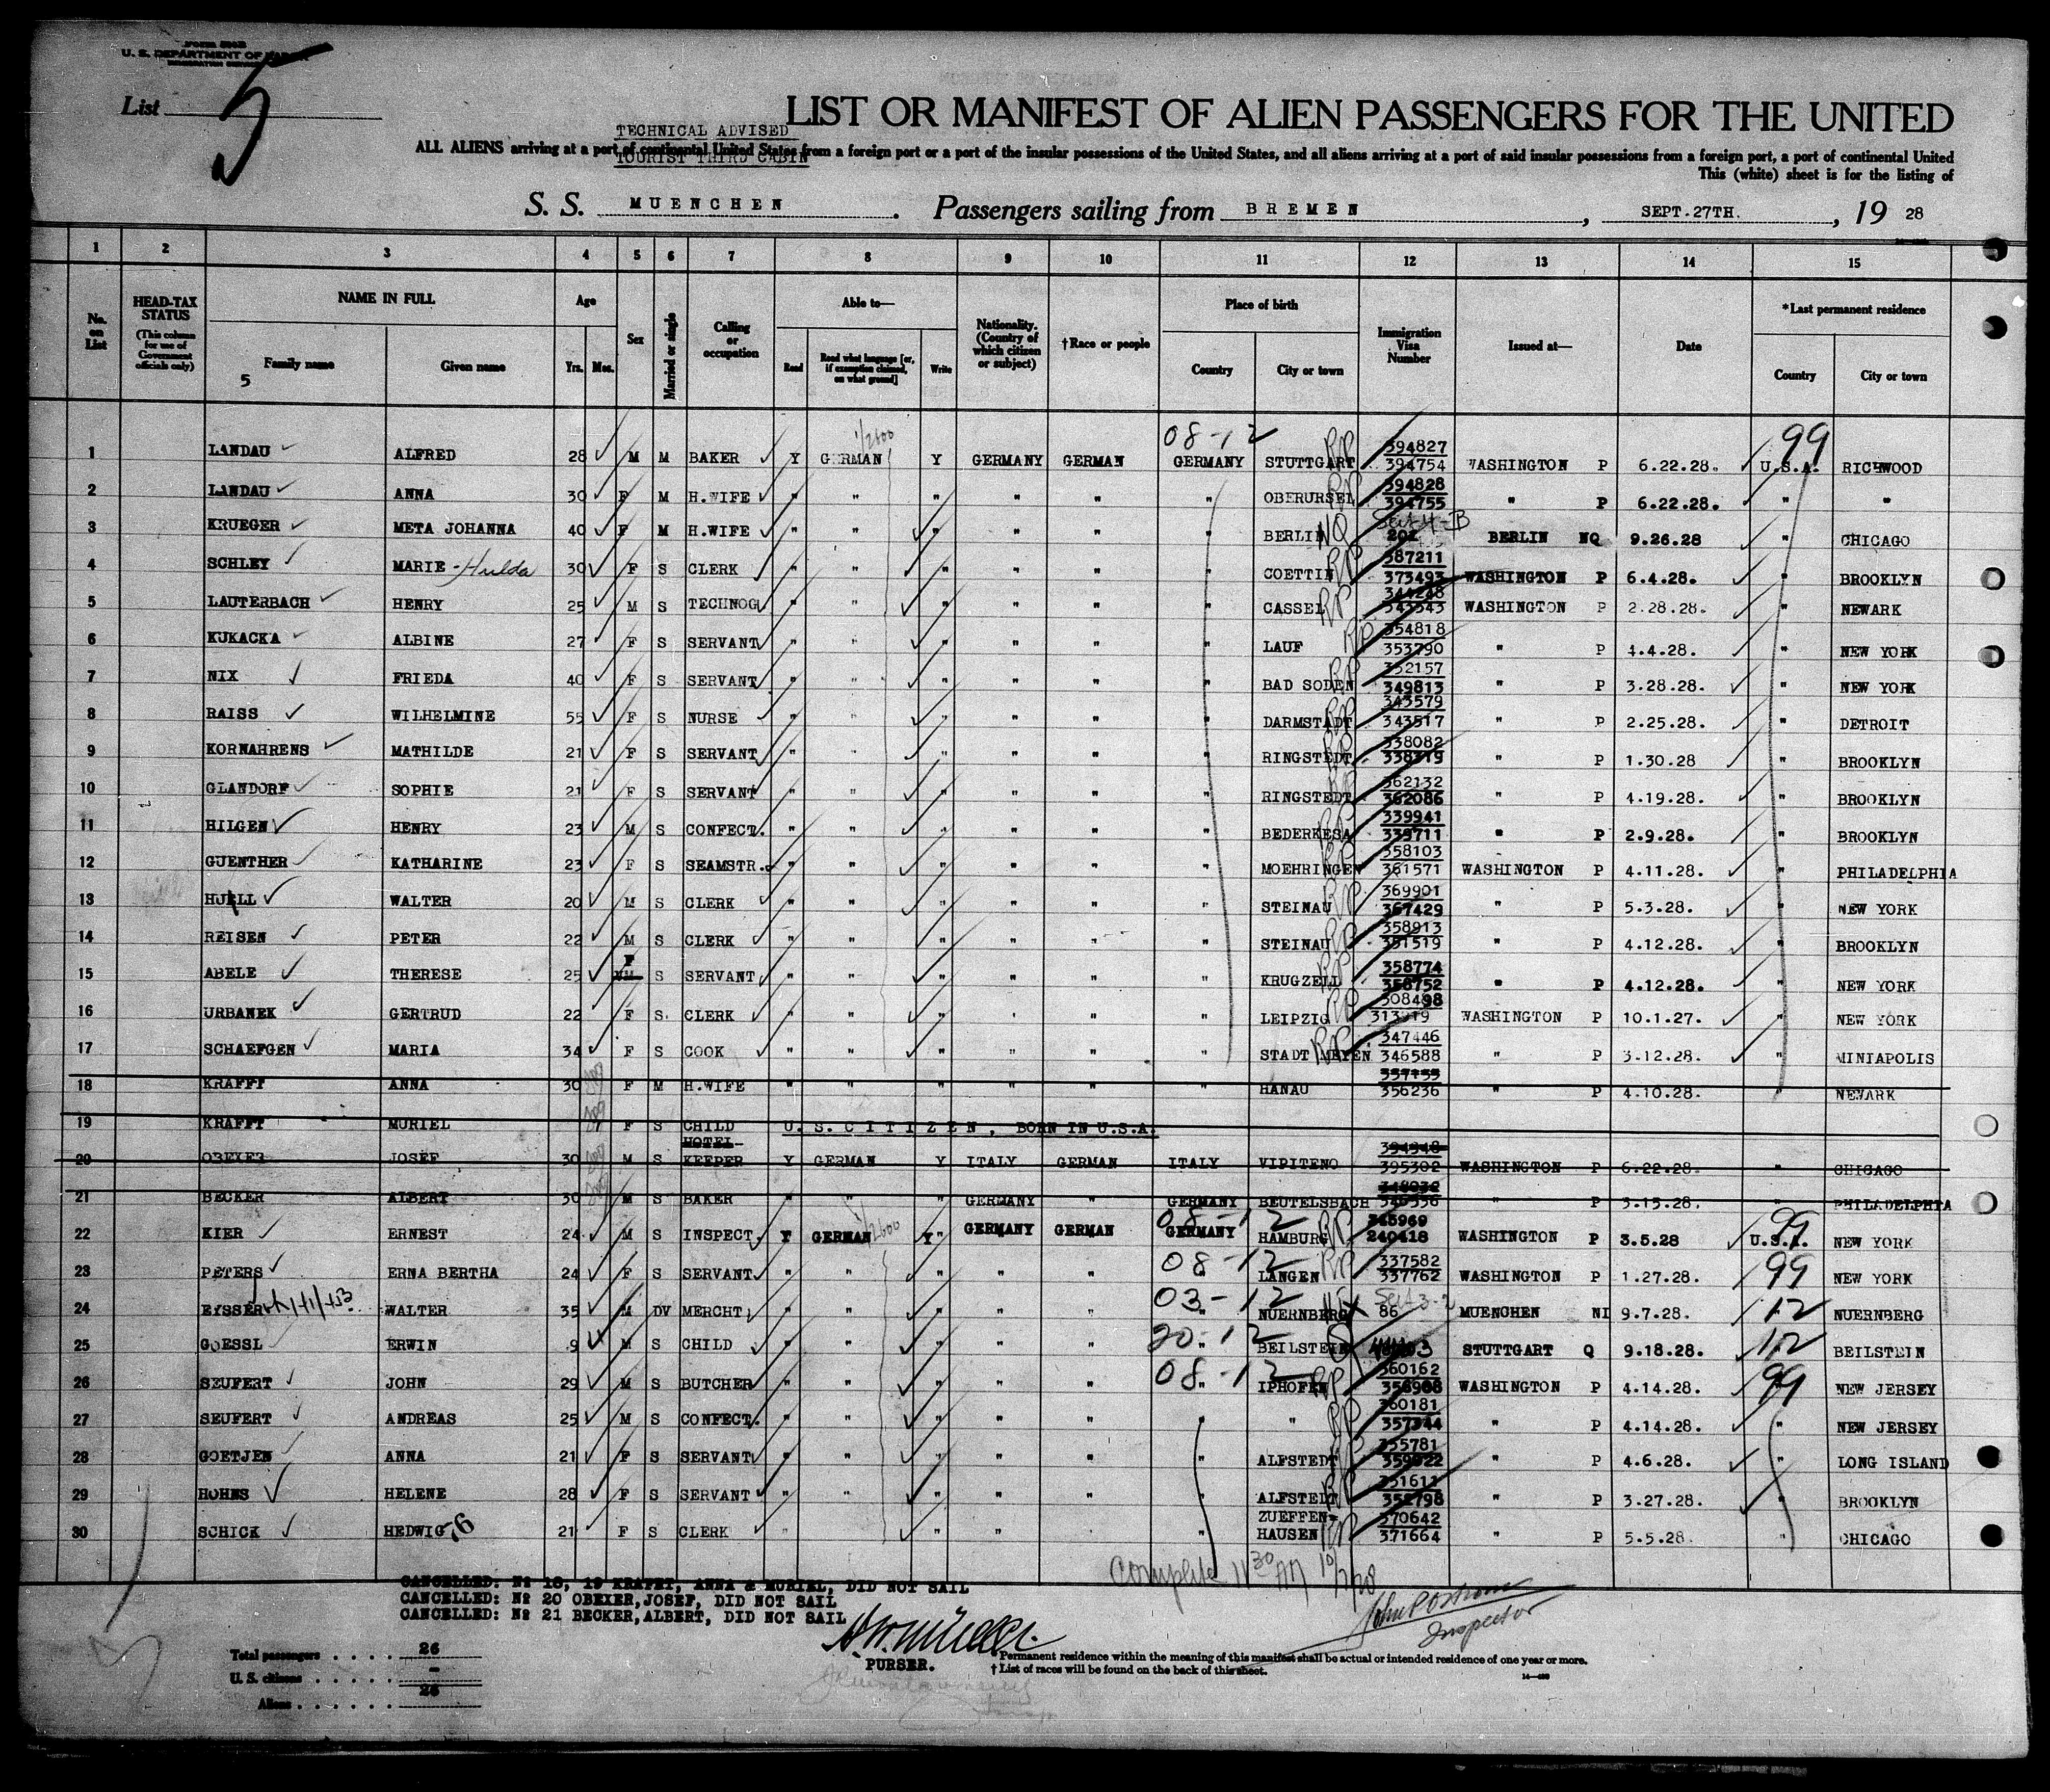 Form 500B
U. S. DEPARTMENT OF LABOR
IMMIGRATION SERVICE
List 5
LIST OR MANIFEST OF ALIEN PASSENGERS FOR THE UNITED
TECHNICAL ADVISED
TOURIST THIRD CABIN
ALL ALIENS arriving at a port of continental United States from a foreign port or a port of the insular possessions of the United States, and all aliens arriving at a port of said insular possessions from a foreign port, a port of continental United
This (white) sheet is for the listing of
S. S. MUENCHEN. Passengers sailing from BREMEN, SEPT.27TH., 19 28
1 2 3 4 5 6 7 8 9 10 11 12 13 14 15
No. on List
HEAD-TAX STATUS (This column for use of Government officials only)
NAME IN FULL
Family name
5
Given name
Age
Yrs. Mos.
Sex
Married or single
Calling or occupation
Able to—
Read
Read what language [or, if exemption claimed, on what ground]
Write
Nationality. (Country of which citizen or subject)
†Race or people
Place of birth
Country
City or town
Immigration Visa Number
Issued at—
Date
*Last permanent residence
Country
City or town
1/2600 08-12 99
1 LANDAU ALFRED 28 M M BAKER Y GERMAN Y GERMANY GERMAN GERMANY STUTTGART RP 394827 394754 WASHINGTON P 6.22.28. U.S.A. RICHWOOD
2 LANDAU ANNA 30 F M H.WIFE " " " " " " OBERURSEL RP 394828 394755 " P 6.22.28. " "
3 KRUEGER META JOHANNA 40 F M H.WIFE " " " " " " BERLIN NQ 202 BERLIN NQ 9.26.28 " CHICAGO
4 SCHLEY MARIE -Hulda 30 F S CLERK " " " " " " COETTIN RP 387211 373493 WASHINGTON P 6.4.28. " BROOKLYN
5 LAUTERBACH HENRY 25 M S TECHNOG. " " " " " " CASSEL RP 343543 WASHINGTON P 2.28.28. " NEWARK
6 KUKACKA ALBINE 27 F S SERVANT " " " " " " LAUF RP 354818 353790 " P 4.4.28. " NEW YORK
7 NIX FRIEDA 40 F S SERVANT " " " " " " BAD SODEN RP 352157 349813 " P 3.28.28. " NEW YORK
8 RAISS WILHELMINE 55 F S NURSE " " " " " " DARMSTADT RP 343579 343517 " P 2.25.28. " DETROIT
9 KORNAHRENS MATHILDE 21 F S SERVANT " " " " " " RINGSTEDT RP 338082 338319 " P 1.30.28 " BROOKLYN
10 GLANDORF SOPHIE 21 F S SERVANT " " " " " " RINGSTEDT RP 362132 362086 " P 4.19.28. " BROOKLYN
11 HILGEN HENRY 23 M S CONFECT. " " " " " " BEDERKESA RP 339941 339711 " P 2.9.28. " BROOKLYN
12 GUENTHER KATHARINE 23 F S SEAMSTR. " " " " " " MOEHRINGEN RP 358103 361571 WASHINGTON P 4.11.28. " PHILADELPHIA
13 HUELL WALTER 20 M S CLERK " " " " " " STEINAU RP 369901 367429 " P 5.3.28. " NEW YORK
14 REISEN PETER 22 M S CLERK " " " " " " STEINAU RP 358913 351519 " P 4.12.28. " BROOKLYN
15 ABELE THERESE 25 F S SERVANT " " " " " " KRUGZELL RP 358774 358752 " P 4.12.28. " NEW YORK
16 URBANEK GERTRUD 22 F S. CLERK " " " " " " LEIPZIG RP 308498 WASHINGTON P 10.1.27. " NEW YORK
17 SCHAEFGEN MARIA 34 F S COOK " " " " " " STADT MEYEN RP 347446 346588 " P 3.12.28. " MINIAPOLIS
18 KRAFFT ANNA 30 F M H.WIFE " " " " " " HANAU 356236 " P 4.10.28. " NEWARK
19 KRAFFT MURIEL F S CHILD U.S.CITIZEN, BORN IN U.S.A.
20 OBEXER JOSEF 30 M S HOTEL-KEEPER Y GERMAN Y ITALY GERMAN ITALY VIPITENO 394948 395302 WASHINGTON P 6.22.28. " CHICAGO
21 BECKER ALBERT 30 M S BAKER " " " GERMANY " GERMANY BEUTELSBACH 348032 " P 3.15.28. " PHILADELPHIA
22 KIER ERNEST 24 M S INSPECT. Y GERMAN 1/2600 Y" GERMANY GERMAN 08-12 GERMANY HAMBURG RP 240418 WASHINGTON P 3.5.28 99 U.S.A. NEW YORK
23 PETERS ERNA BERTHA 24 F S SERVANT " " " " " 08-12 " LANGEN RP 337582 337762 WASHINGTON P 1.27.28. 99 NEW YORK
24 EYSSER WALTER 35 M DV MERCHT. " " " " " 03-12 " NUERNBERG 86 MUENCHEN NI 9.7.28. 12 NUERNBERG
25 GOESSL ERWIN 9 M S CHILD " " " " " 20-12 " BEILSTEIN STUTTGART Q 9.18.28. 12 BEILSTEIN
26 SEUFERT JOHN 29 M S BUTCHER " " " " " 08-12 IPHOFEN RP 360162 356908 WASHINGTON P 4.14.28. 99 NEW JERSEY
27 SEUFERT ANDREAS 25 M S CONFECT. " " " " " " " RP 360181 357344 " P 4.14.28. " NEW JERSEY
28 GOETJEN ANNA 21 F S SERVANT " " " " " " ALFSTEDT RP 355781 359022 " P 4.6.28. " LONG ISLAND
29 HOHNS HELENE 28 F S SERVANT " " " " " " ALFSTEDT RP 351611 352798 " P 3.27.28. " BROOKLYN
30 SCHICK HEDWIG 76 21 F S CLERK " " " " " ZUEFFEN-HAUSEN RP 370642 371664 " P 5.5.28. " CHICAGO
Complete 11 30 AM 10/7/28
CANCELLED: No 18, 19 KRAFFT, ANNA & MURIEL, DID NOT SAIL
CANCELLED: No 20 OBEXER,JOSEF, DID NOT SAIL
CANCELLED: No 21 BECKER,ALBERT, DID NOT SAIL
PURSER.
Inspector
Total passengers . . . . 26
U. S. citizens . . . . . -
Aliens . . . . . . 26
*Permanent residence within the meaning of this manifest shall be actual or intended residence of one year or more.
† List of races will be found on the back of this sheet.